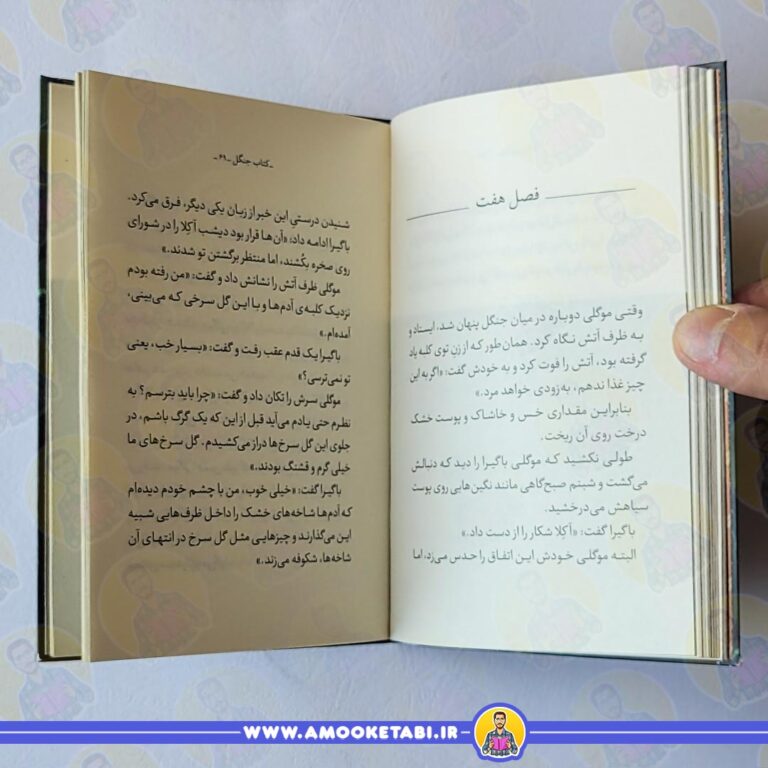 فصل هفت
وقتی موگلی دوباره در میان جنگل پنهان شد، ایستاد و
به ظرف آتش نگاه کرد. همان‌طور که از زنِ توی کلبه یاد
گرفته بود، آتش را فوت کرد و به خودش گفت: «اگر به این
چیز غذا ندهم، به‌زودی خواهد مرد.»
بنابراین مقداری خس و خاشاک و پوست خشک
درخت روی آن ریخت.
طولی نکشید که موگلی باگیرا را دید که دنبالش
می‌گشت و شبنم صبح‌گاهی مانند نگین‌هایی روی پوست
سیاهش می‌درخشید.
باگیرا گفت: «آکِلا شکار را از دست داد.»
البته موگلی خودش این اتفاق را حدس می‌زد، اما
- کتاب جنگل - ۶۹ -
شنیدن درستیِ این خبر از زبان یکی دیگر، فرق می‌کرد.
باگیرا ادامه داد: «آن‌ها قرار بود دیشب آکِلا را در شورای
روی صخره بکُشند، اما منتظر برگشتن تو شدند.»
موگلی ظرف آتش را نشانش داد و گفت: «من رفته بودم
نزدیک کلبه‌ی آدم‌ها و با این گل سرخی که می‌بینی،
آمده‌ام.»
باگیرا یک قدم عقب رفت و گفت: «بسیار خب، یعنی
تو نمی‌ترسی؟»
موگلی سرش را تکان داد و گفت: «چرا باید بترسم؟ به
نظرم حتی یادم می‌آید قبل از این که یک گرگ باشم، در
جلوی این گل سرخ‌ها دراز می‌کشیدم. گل سرخ‌های ما
خیلی گرم و قشنگ بودند.»
باگیرا گفت: «خیلی خوب، من با چشم خودم دیده‌ام
که آدم‌ها شاخه‌های خشک را داخل ظرف‌هایی شبیه
این می‌گذارند و چیزهایی مثل گل سرخ در انتهای آن
شاخه‌ها، شکوفه می‌زند.»
WWW.AMOOKETABI.IR